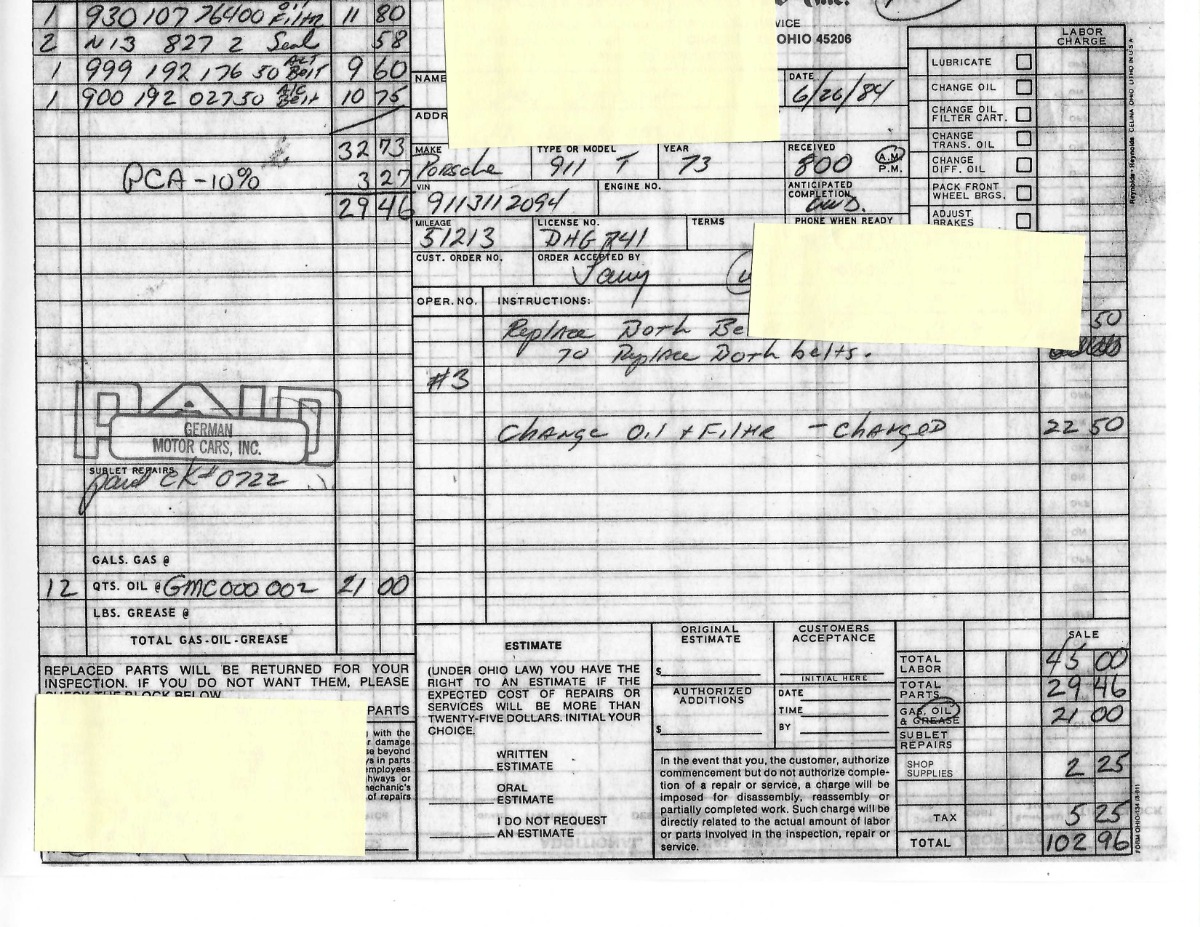 1 930 107 764 00 Oil Filtr 11 80
2 N13 827 2 Seal 58
1 999 192 176 50 ALT Belt 9 60
1 900 192 027 50 A/C Belt 10 75
32 73
PCA -10% 3 27
29 46
GERMAN
MOTOR CARS, INC.
SUBLET REPAIRS
paid CK# 0722
GALS. GAS @
12 QTS. OIL @ GMC000 002 21 00
LBS. GREASE @
TOTAL GAS-OIL-GREASE
REPLACED PARTS WILL BE RETURNED FOR YOUR
INSPECTION. IF YOU DO NOT WANT THEM, PLEASE
CHECK THE BLOCK BELOW
PARTS
with the
damage
beyond
in parts
employees
or
mechanic's
of repairs
Inc.
OHIO 45206
NAME
DATE
6/26/84
ADDR
MAKE
Porsche
TYPE OR MODEL
911 T
YEAR
73
RECEIVED
800 A.M.
P.M.
VIN
9113112094
ENGINE NO.
ANTICIPATED
COMPLETION
MILEAGE
51213
LICENSE NO.
DHG 741
TERMS
PHONE WHEN READY
CUST. ORDER NO.
ORDER ACCEPTED BY
LABOR
CHARGE
LUBRICATE
CHANGE OIL
CHANGE OIL
FILTER CART.
CHANGE
TRANS. OIL
CHANGE
DIFF. OIL
PACK FRONT
WHEEL BRGS.
ADJUST
BRAKES
OPER. NO. INSTRUCTIONS:
Replace Both Be 50
To Replace Both belts.
#3
Change Oil + Filter - Charged 22 50
ESTIMATE
(UNDER OHIO LAW) YOU HAVE THE
RIGHT TO AN ESTIMATE IF THE
EXPECTED COST OF REPAIRS OR
SERVICES WILL BE MORE THAN
TWENTY-FIVE DOLLARS. INITIAL YOUR
CHOICE.
WRITTEN
ESTIMATE
ORAL
ESTIMATE
I DO NOT REQUEST
AN ESTIMATE
ORIGINAL
ESTIMATE
$
AUTHORIZED
ADDITIONS
$
CUSTOMERS
ACCEPTANCE
INITIAL HERE
DATE
TIME
BY
In the event that you, the customer, authorize
commencement but do not authorize comple-
tion of a repair or service, a charge will be
imposed for disassembly, reassembly or
partially completed work. Such charge will be
directly related to the actual amount of labor
or parts involved in the inspection, repair or
service.
SALE
TOTAL
LABOR 45 00
TOTAL
PARTS 29 46
GAS, OIL
& GREASE 21 00
SUBLET
REPAIRS
SHOP
SUPPLIES 2 25
TAX 5 25
TOTAL 102 96